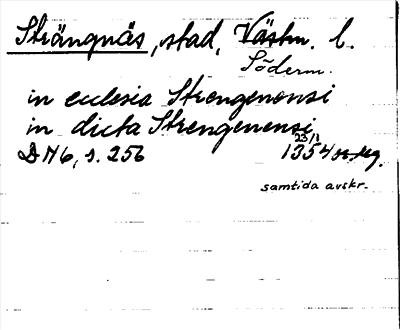 Strängnäs, stad, Västm. l.
Söderm.
in ecclesia Strengenensi
in dicta Strengenensi
23/11
DN 6, s. 256 1354 or. perg.
samtida avskr.